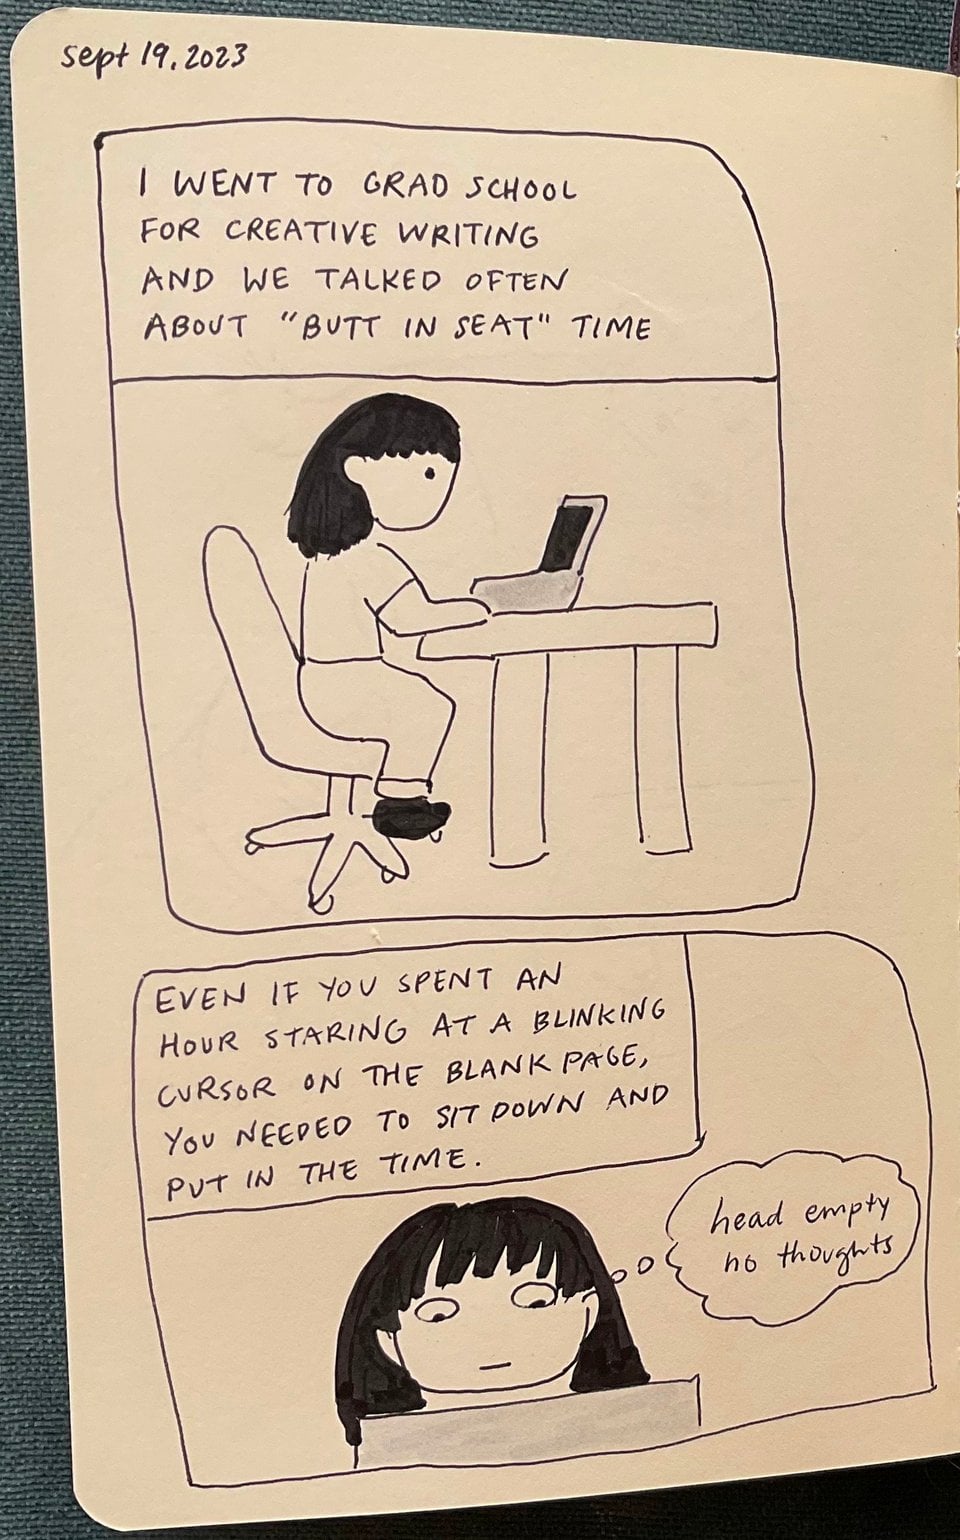 sept 19, 2023
I WENT TO GRAD SCHOOL
FOR CREATIVE WRITING
AND WE TALKED OFTEN
ABOUT "BUTT IN SEAT" TIME
EVEN IF YOU SPENT AN
HOUR STARING AT A BLINKING
CURSOR ON THE BLANK PAGE,
YOU NEEDED TO SIT DOWN AND
PUT IN THE TIME.
head empty
no thoughts